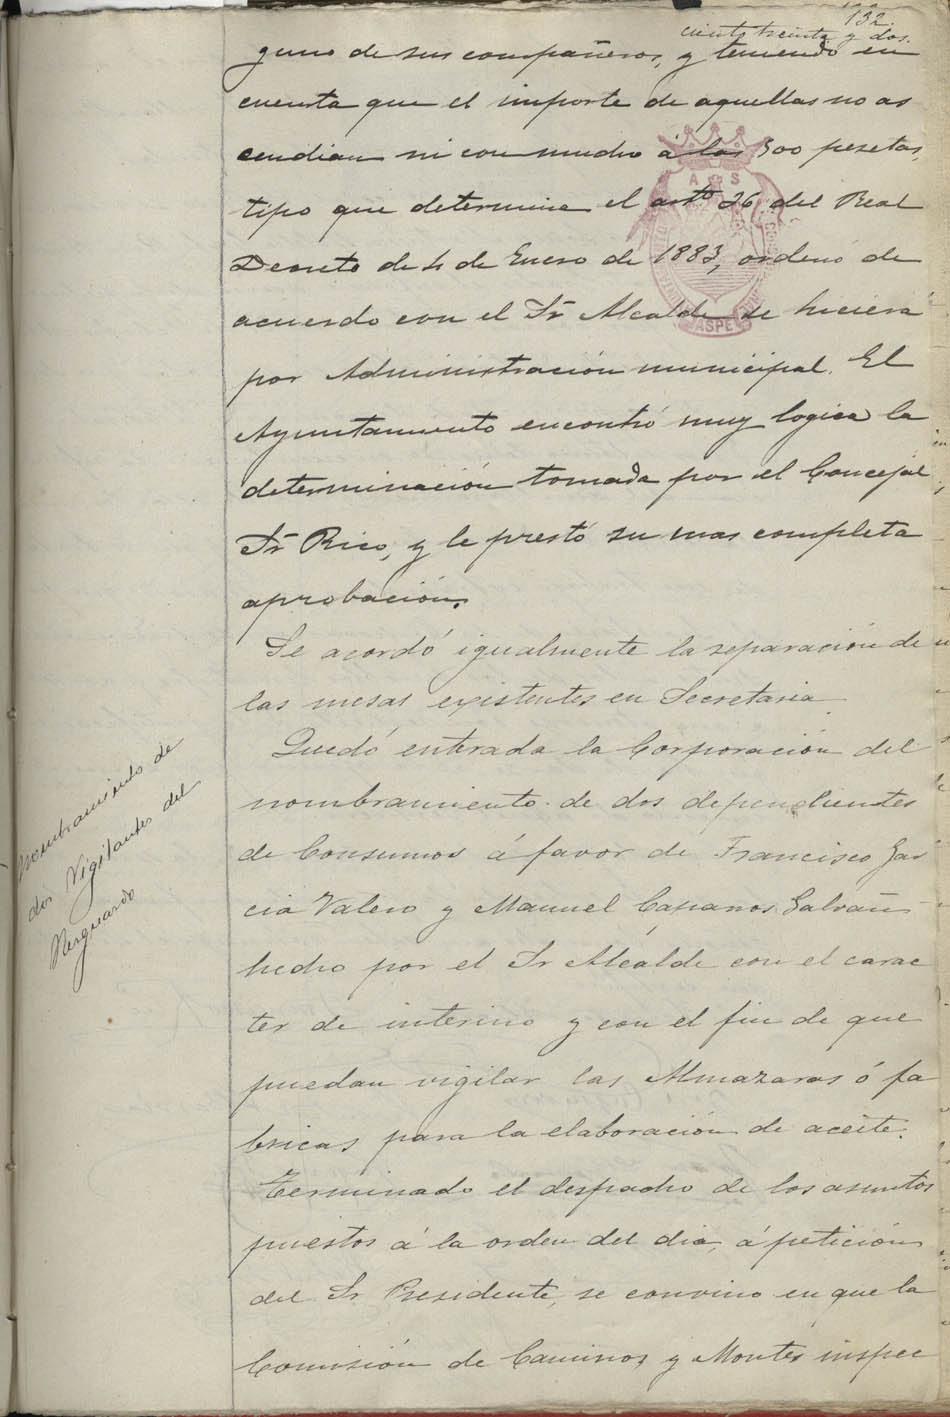 132.
ciento treinta y dos.
guno de sus compañeros, y teniendo en
cuenta que el importe de aquellas no as
cendian ni con mucho á las 500 pesetas,
tipo que determina el artº 26 del Real
Decreto de 4 de Enero de 1883, ordenó de
acuerdo con el Sr Alcalde se hiciera
por Administración municipal. El
Ayuntamiento encontró muy logica la
determinación tomada por el Concejal
Sr Rico, y le prestó su mas completa
aprobación.
Se acordó igualmente la separación de
las mesas existentes en Secretaria.
Quedó enterada la Corporación del
nombramiento de dos dependientes
de Consumos á favor de Francisco Gar
cia Valero y Manuel Galvañ
hecho por el Sr Alcalde con el carac
ter de interino y con el fin de que
puedan vigilar las Almazaras ó fa
bricas para la elaboración de aceite.
Terminado el despacho de los asuntos
puestos á la orden del dia, á petición
del Sr Presidente, se convino en que la
Comisión de Caminos y Montes inspec
Nombramiento de
dos Vigilantes del
Resguardo
A S
ASPE